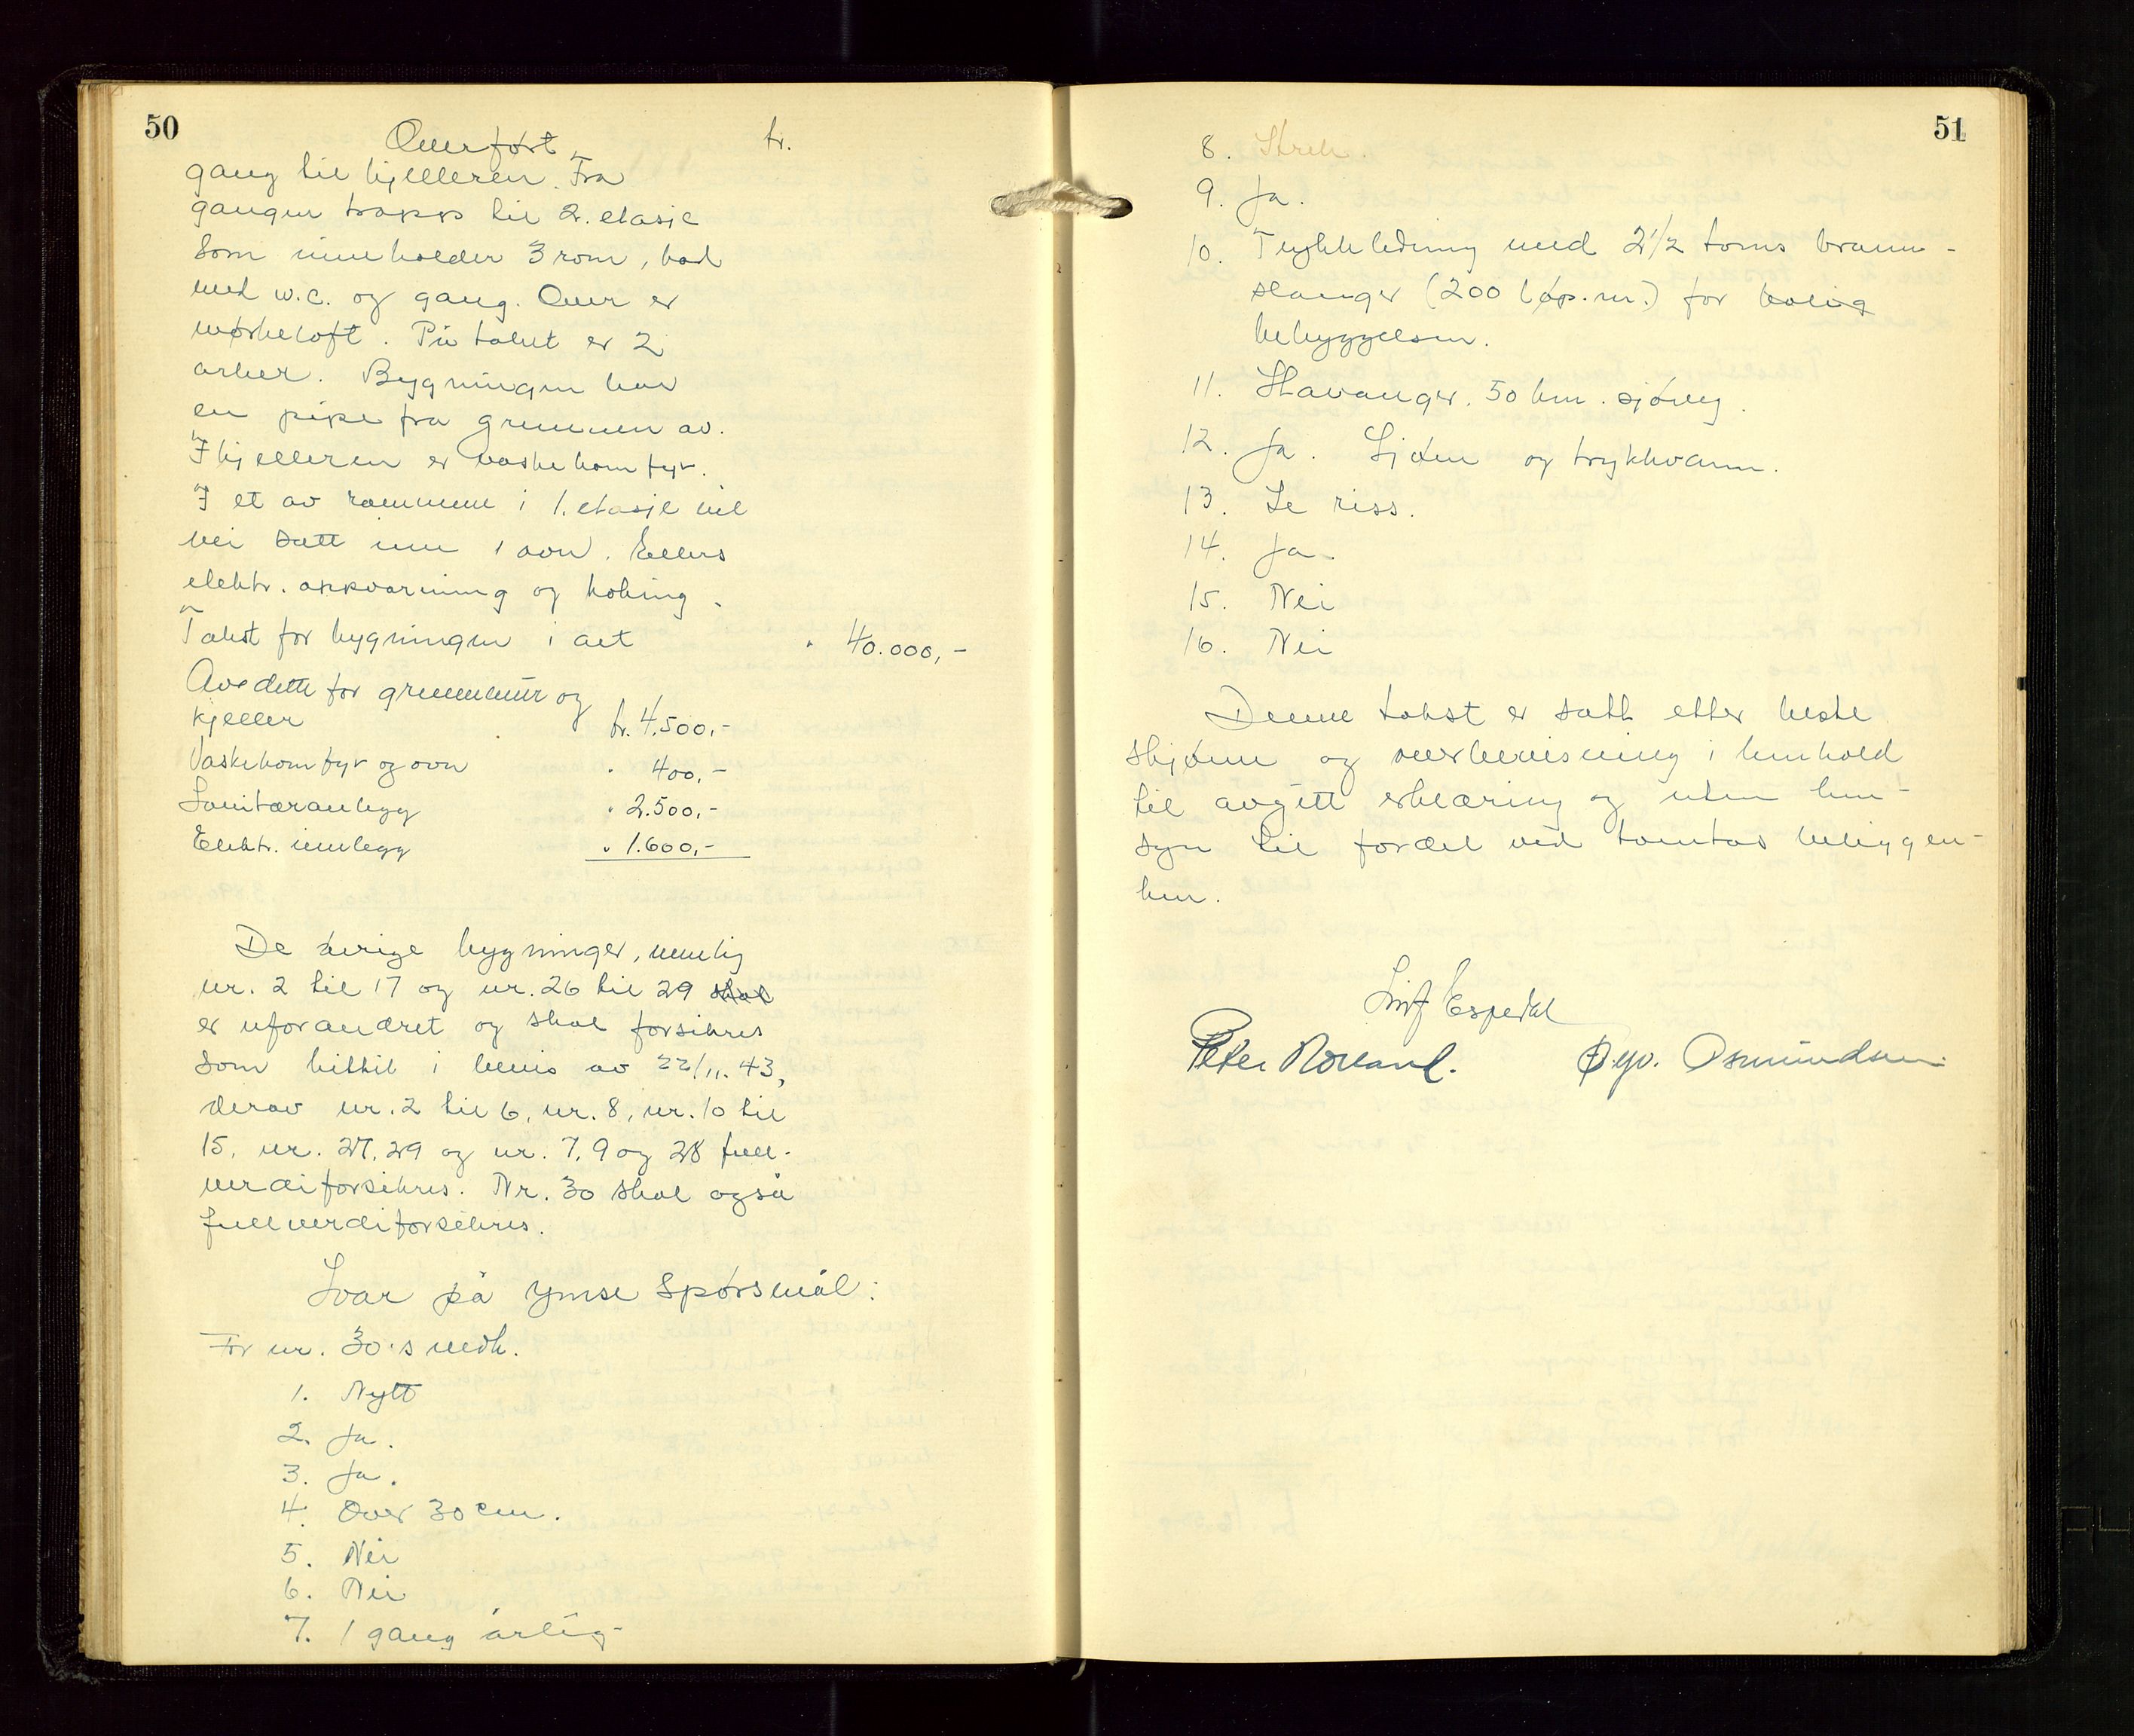 50
Overført kr.
gang til kjelleren. Fra
gangen trapp til 2. etasje
som inneholder 3 rom, bad
med w.c. og gang. Over er
mørkeloft. På taket er 2
arker. Bygningen har
en pipe fra grunnen av.
I kjelleren er vaskekomfyr.
I et av rommene i 1. etasje vil
bli satt inn 1 ovn. Ellers
elektr. oppvarming og koking.
Takst for bygningen i alt " 40.000,-
Av dette for grunnmur og
kjeller kr. 4.500,-
Vaskekomfyr og ovn " 400,-
Sanitæranlegg " 2.500,-
Elektr. innlegg " 1.600,-
De øvrige bygninger, nemlig
nr. 2 til 17 og nr. 26 til 29 skal
er uforandret og skal forsikres
som hittil i bevis av 22/11. 43,
derav nr. 2 til 6, nr. 8, nr. 10 til
15, nr. 27, 29 og nr. 7, 9 og 28 full-
verdiforsikres. Nr. 30 skal også
fullverdiforsikres.
Svar på ymse spørsmål:
For nr. 30's vedk.
1. Nytt
2. Ja.
3. Ja.
4. Over 30 cm.
5. Nei
6. Nei
7. 1 gang årlig
51
8. Strek.
9. Ja.
10. Trykkledning med 2 1/2 toms brann-
slanger (200 løp. m.) for bolig
bebyggelsen.
11. Stavanger. 50 km. sjøveg.
12. Ja. Sjøen og trykkvann.
13. Se riss.
14. Ja.
15. Nei
16. Nei
Denne takst er satt etter beste
skjønn og overbevisning i henhold
til avgitt erklæring og uten hen-
syn til fordel ved tomtas beliggen-
het.
Leif Espedal
Peter Rolland. Øyv. Osmundsen